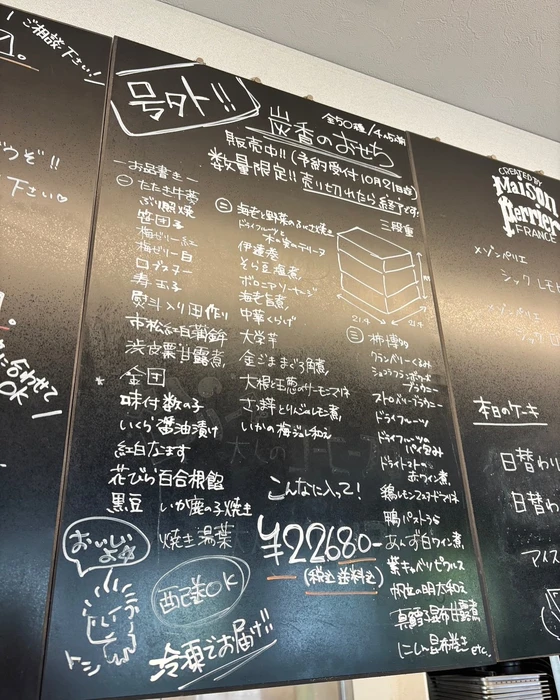 ご相談下さい!
号外!!
全50種/4〜5人前
崗香のおせち
販売中!!(予約受付10月21日迄)
数量限定!!売り切れたら終了です
ーお品書きー
㊀たたき牛蒡
ぶり照焼
笹団子
梅ゼリー紅
梅ゼリー白
ロブスター
寿玉子
射込み
市松紅白蒲鉾
渋皮栗甘露煮
金団
味付数の子
いくら醤油漬け
紅白なます
花びら百合根餡
黒豆 いか鹿の子焼き
焼き湯葉
㊁海老と野菜の
ドライフルーツと
木の実のテリーヌ
伊達巻
そら豆塩煮
ボロニアソーセージ
海老旨煮
中華くらげ
大学芋
金ごままぐろ角煮
さつま芋とりんごのレモン煮
いかの梅ジュレ和え
こんなに入って!
¥22680-
(税込送料込)
三段重
㊂柿博多
クランベリーくるみ
ショコラフランボワーズ
ブラウニー
ストロベリーブラウニー
ドライフルーツ
ドライフルーツの
パイ包み
ドライトマトの
赤ワイン煮
鴨パストラミ
あんず白ワイン煮
帆立の明太和え
真鱈子昆布甘露煮
にしん昆布巻き etc.
おいしいよ
配送OK
トシ
冷凍でお届け!!
に合わせて
OK
CREATED BY
Maison
Perrier
FRANCE
メゾンペリエ
本日のケーキ
日替わり
日替わ
アイス